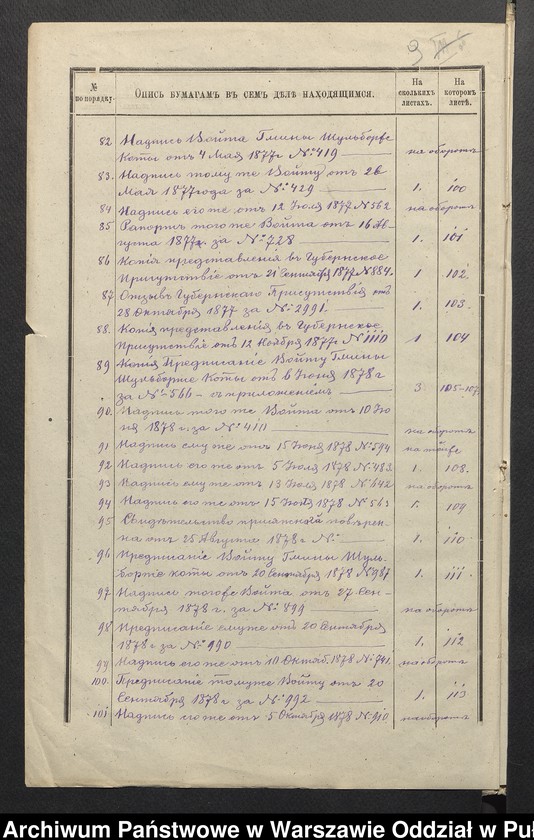 9
№ по порядку.
Опись бумагамъ въ семъ дѣлѣ находящимся.
На сколькихъ листахъ.
На которомъ листѣ.
82 Надпись Войта Гмины Шульборже
Коты отъ 4 Мая 1877 г № 419 на оборотѣ
83. Надпись тому же Войту отъ 26
Мая 1877 года за № 429 1. 100
84 Надпись его же отъ 12 Июля 1877 № 562 на оборотѣ
85 Рапортъ того же Войта отъ 16 Ав-
густа 1877 г. за № 728 1. 101
86 Копія представленія въ Губернское
Присутствіе отъ 21 Сентября 1877 № 884. 1 102.
87 Отзывъ Губернскаго Присутствія отъ
28 Октября 1877 за № 2991. 1. 103.
88. Копія представленія въ Губернское
Присутствіе отъ 12 Ноября 1877 г № 1110 1 104
89 Копія Предписаніе Войту Гмины
Шульборже Коты отъ 6 Июня 1878 г
за № 566 - съ приложеніемъ 3. 105-107.
90. Надпись того же Войта отъ 10 Ию
ня 1878 г. за № 411 на оборотѣ
91 Надпись ему же отъ 15 Июня 1878 № 594
92 Надпись его же отъ 5 Июля 1878 № 483 1. 108.
93 Надпись ему же отъ 13 Июля 1878 № 642 на оборотѣ
94 Надпись его же отъ 15 Июля 1878 № 563 1. 109
95 Свидѣтельство присяжнаго повѣрен-
на отъ 25 Августа 1878 г № 1. 110
96 Предписаніе Войту Гмины Шуль-
борже Коты отъ 20 Сентября 1878 № 987 1. 111.
97 Надпись того же Войта отъ 27 Сен-
тября 1878 г. за № 899 на оборотѣ
98 Предписаніе ему же отъ 20 Сентября
1878 г за № 990 1. 112
99 Надпись его же отъ 10 Октяб. 1878 № 941. на оборотѣ
100. Предписаніе тому же Войту отъ 20
Сентября 1878 г за № 992 1. 113
101 Надпись его же отъ 5 Октября 1878 № 910 на оборотѣ
Archiwum Państwowe w Warszawie Oddział w Puł